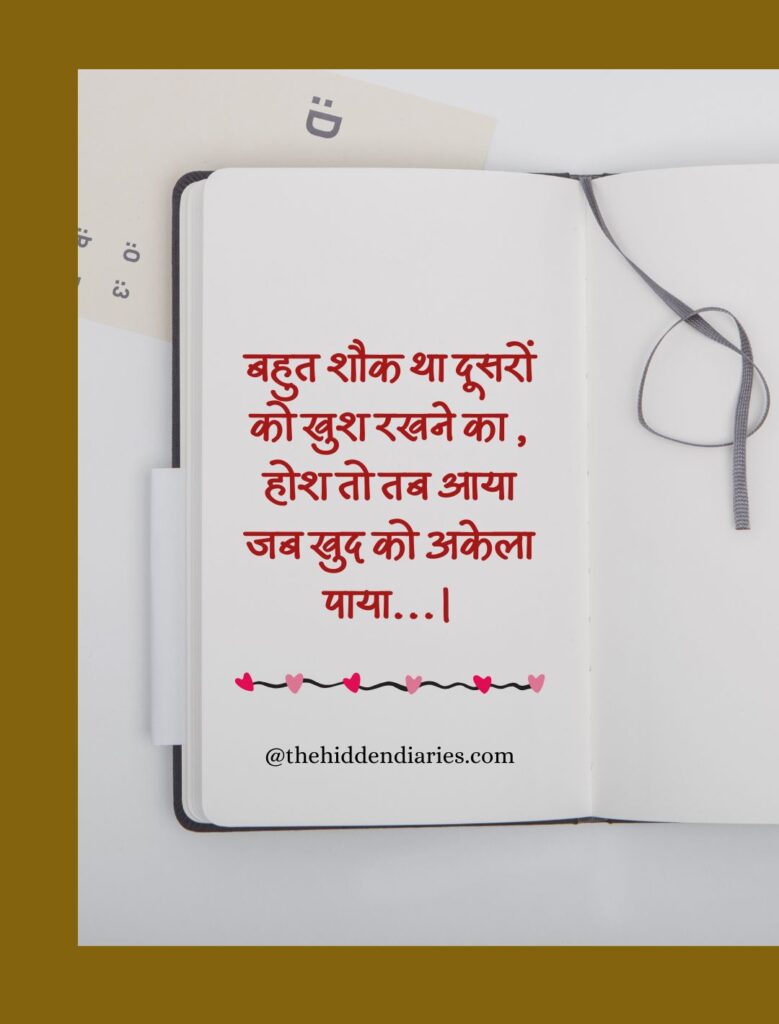 :D
:O
:3
बहुत शौक था दूसरों
को खुश रखने का ,
होश तो तब आया
जब खुद को अकेला
पाया...|
@thehiddendiaries.com